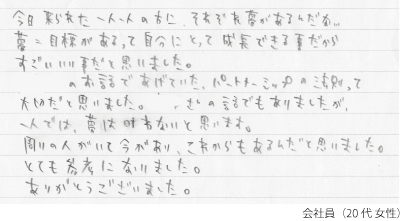 今日 来られた一人一人の方に、それぞれ夢があるんだな。
夢＝目標があるって自分にとって成長できる事だから
すごいいい事だと思いました。
のお話であげていた、パートナーシップの法則って
大切だと思いました。 の話でもありましたが、
一人では、夢は叶わないと思います。
周りの人がいて今があり、これからもあるんだと思いました。
とても参考になりました。
ありがとうございました。
会社員（20代女性）